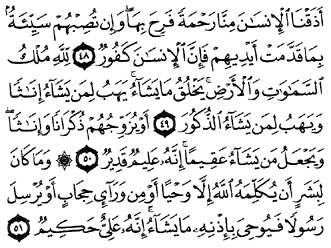 أَذَقْنَا ٱلْإِنسَٰنَ مِنَّا رَحْمَةً فَرِحَ بِهَا ۖ وَإِن تُصِبْهُمْ سَيِّئَةٌۢ
بِمَا قَدَّمَتْ أَيْدِيهِمْ فَإِنَّ ٱلْإِنسَٰنَ كَفُورٌ ٤٨ لِّلَّهِ مُلْكُ
ٱلسَّمَٰوَٰتِ وَٱلْأَرْضِ ۚ يَخْلُقُ مَا يَشَآءُ ۚ يَهَبُ لِمَن يَشَآءُ إِنَٰثًا
وَيَهَبُ لِمَن يَشَآءُ ٱلذُّكُورَ ٤٩ أَوْ يُزَوِّجُهُمْ ذُكْرَانًا وَإِنَٰثًا ۖ
وَيَجْعَلُ مَن يَشَآءُ عَقِيمًا ۚ إِنَّهُۥ عَلِيمٌ قَدِيرٌ ٥٠ ۞ وَمَا كَانَ
لِبَشَرٍ أَن يُكَلِّمَهُ ٱللَّهُ إِلَّا وَحْيًا أَوْ مِن وَرَآئِ حِجَابٍ أَوْ يُرْسِلَ
رَسُولًا فَيُوحِىَ بِإِذْنِهِۦ مَا يَشَآءُ ۚ إِنَّهُۥ عَلِىٌّ حَكِيمٌ ٥١